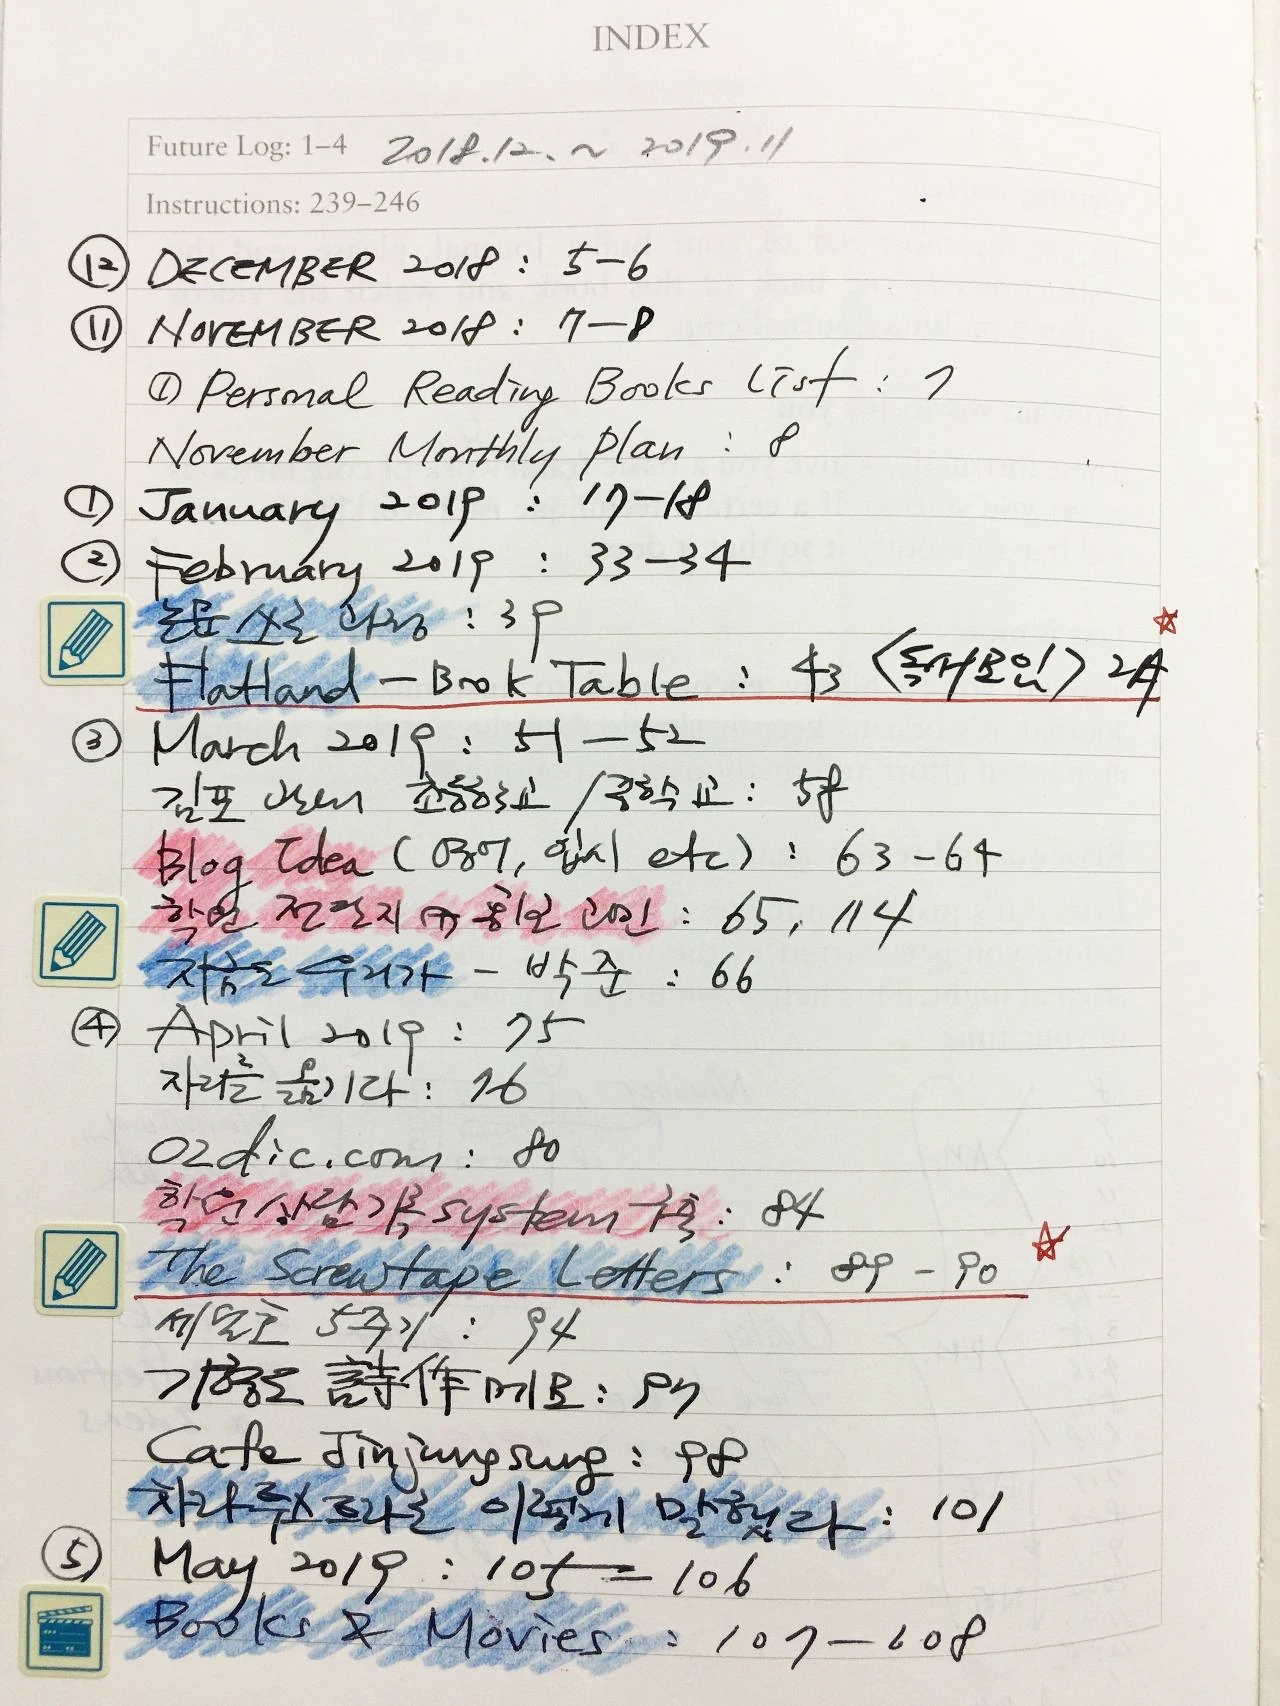 INDEX
Future Log: 1–4 2018.12. ~ 2019.11
Instructions: 239–246
⑫ DECEMBER 2018 : 5-6
⑪ NOVEMBER 2018 : 7-8
① Personal Reading Books List : 7
November Monthly Plan : 8
① January 2019 : 17-18
② February 2019 : 33-34
: 39
Flatland - Book Table : 43 <독서모임>
③ March 2019 : 51-52
김포 초등학교 / 중학교 : 58
Blog Idea (영어, 입시 etc) : 63-64
학원 전단지 홍보 고민 : 65, 114
지금도 우리가 - 박준 : 66
④ April 2019 : 75
자리를 옮기다 : 76
OZdic.com : 80
학원 상담기록 system 구축 : 84
The Screwtape Letters : 89-90
세월호 5주기 : 94
기형도 詩作 메모 : 97
Cafe Jinjungsung : 98
차라투스트라는 이렇게 말했다 : 101
⑤ May 2019 : 105-106
Books & Movies : 107-108